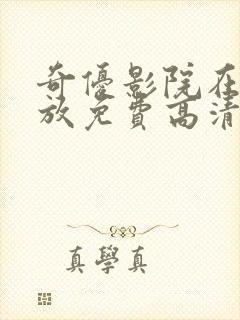 奇優影院在
放免費高清
真學真